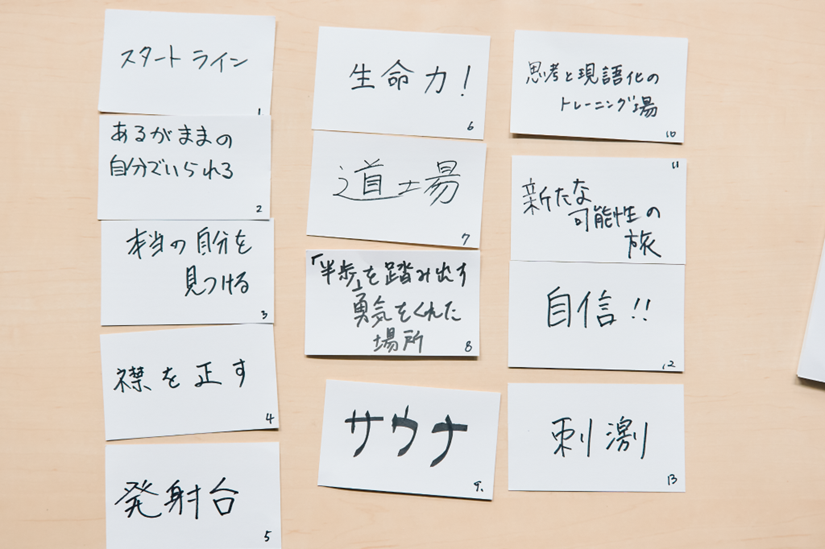 スタートライン
1
あるがままの
自分でいられる
2
本当の自分を
見つける
3
襟を正す
4
発射台
5
生命力！
6
道場
7
「半歩」を踏み出す
勇気をくれた
場所
8
サウナ
9.
思考と現語化の
トレーニング場
10
11
新たな
可能性の
旅
自信!!
12
刺激
13